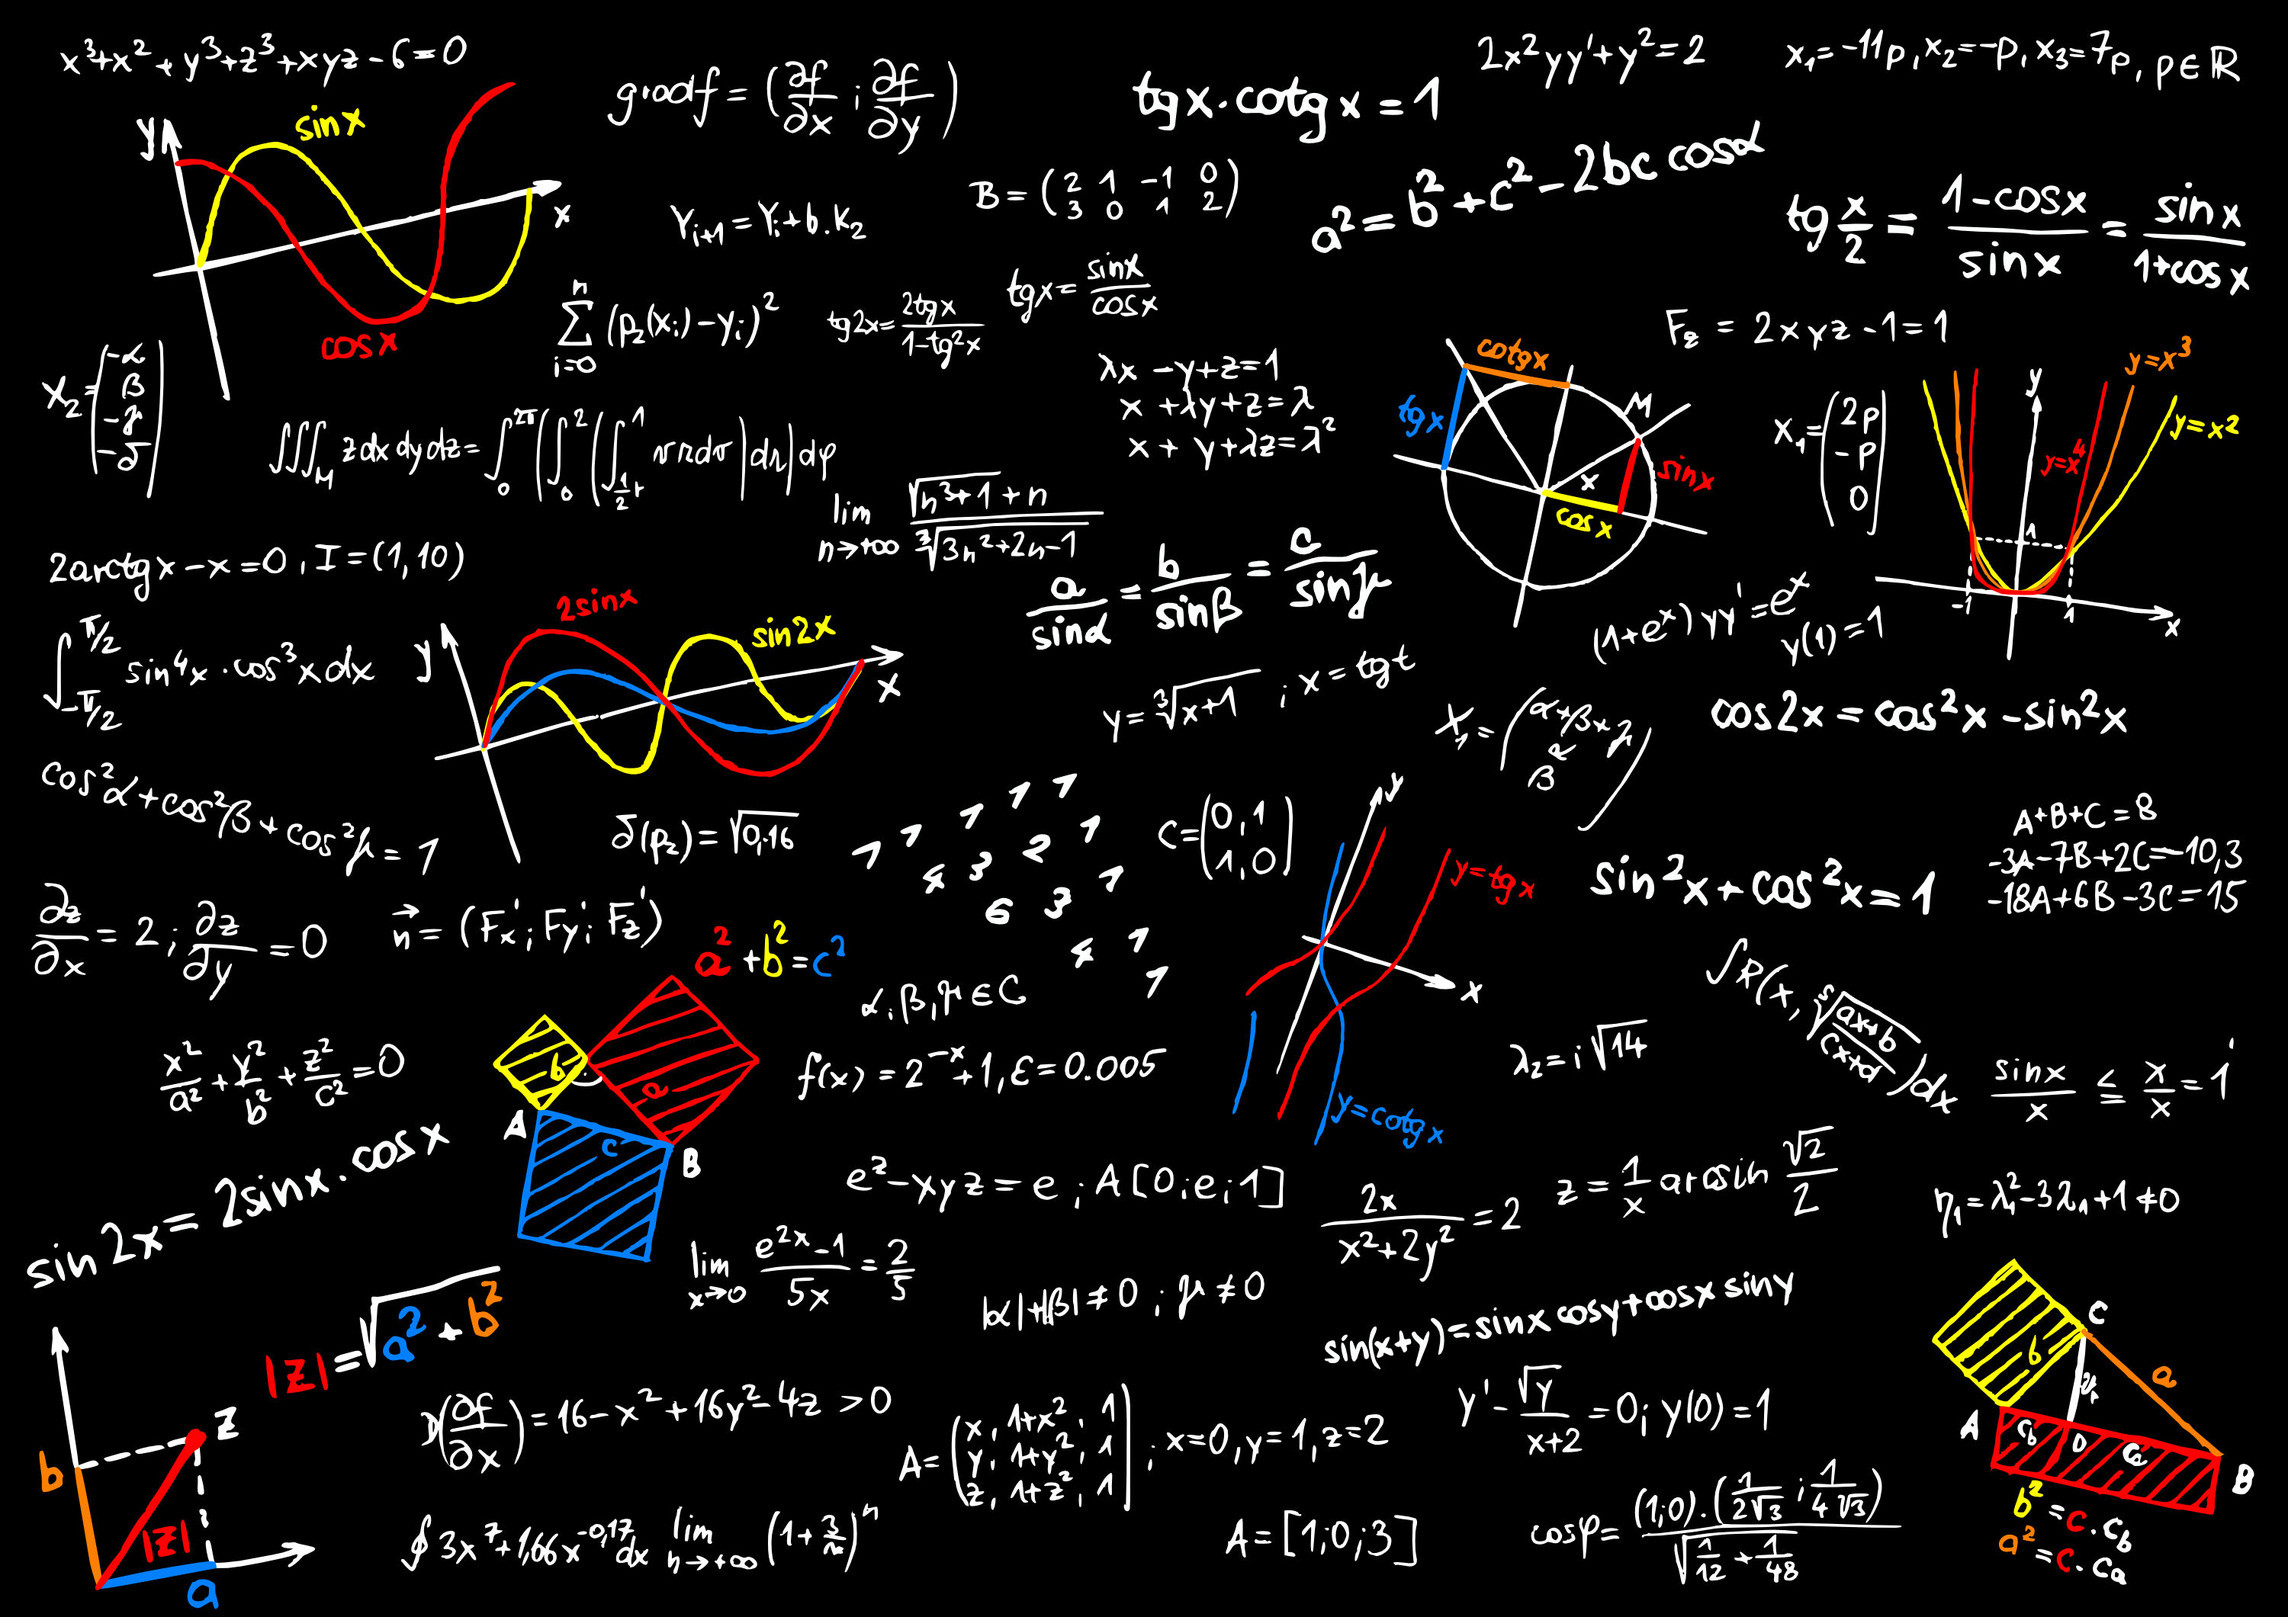 x³+x²+y³+z³+xyz-6=0
gradf = (∂f/∂x ; ∂f/∂y)
tgx·cotgx = 1
2x²yy'+y²=2
x₁=-11p, x₂=-p, x₃=7p, p∈ℝ
y
sinx
x
cosx
Yᵢ₊₁=Yᵢ+b.K₂
B = (2 1 -1 0
3 0 1 2)
a² = b²+c²-2bc cosα
tg x/2 = (1-cosx)/sinx = sinx/(1+cosx)
∑ⁿᵢ₌₀ (p₂(xᵢ)-yᵢ)²
tg2x = 2tgx/(1-tg²x)
tgx = sinx/cosx
F_z = 2xyz-1=1
X₂ = (-α
β
-γ
-δ)
λx -y+z=1
x +λy+z=λ
x + y+λz=λ²
cotgx
tgx
M
x
sinx
cosx
X₁ = (2p
-p
0)
y
y=x³
y=x²
y=x⁴
1
-1
1
x
∫∫∫_M zdxdydz =
lim n→+∞ (√(n³+1)+n)/∛(3n²+2n-1)
2arctgx-x=0, I=(1,10)
a/sinα = b/sinβ = c/sinγ
(1+eˣ)yy'=eˣ
y(1)=1
∫_{-π/2}^{π/2} sin⁴x·cos³xdx
y
2sinx
sin2x
x
y=∛(x+1) ; x=tgt
X₁ = (α+β+γ
α
β)
cos2x = cos²x-sin²x
cos²α+cos²β+cos²γ=1
δ(p₂)=√0,16
1 1 1 1 1
4 3 2 1
6 3 1
4 1
1
C=(0,1
1,0)
y
y=tgx
x
y=cotgx
sin²x+cos²x=1
A+B+C=8
-3A-7B+2C=-10,3
-18A+6B-3C=15
∂z/∂x = 2 ; ∂z/∂y = 0
n⃗ = (F'x; F'y; F'z)
a²+b²=c²
b
a
A
c
B
α,β,γ∈C
x²/a²+y²/b²+z²/c²=0
f(x)=2⁻ˣ+1, ε=0.005
λ₂=i√14
∫R(x, ˢ√((ax+b)/(cx+d)))dx
sinx/x ≤ x/x = 1
sin2x = 2sinx·cosx
eᶻ-xyz=e ; A[0;e;1]
2x/(x²+2y²)=2
z = 1/x arcsin √2/2
η₁=λ₁²-3λ₁+1≠0
lim x→0 (e²ˣ-1)/5x = 2/5
|α|+|β|≠0 ; γ≠0
sin(x+y)=sinxcosy+cosxsiny
|z|=√(a²+b²)
z
b
|z|
a
D(∂f/∂x)=16-x²+16y²-4z >0
A=(x, 1+x², 1
y, 1+y², 1
z, 1+z², 1) ; x=0, y=1, z=2
y'-√y/(x+2)=0; y(0)=1
C
b
a
A
c_b
D
c_a
B
b²=c.c_b
a²=c.c_a
∮3x⁷+1,66x^(-0,17)dx
lim n→+∞ (1+3/n)ⁿ
A=[1;0;3]
cosφ = (1;0).(1/(2√3) ; 1/(4√3))/√(1/12+1/48)